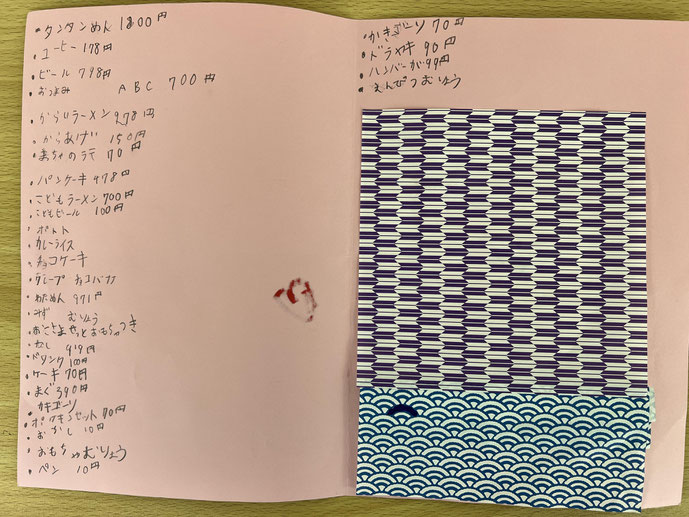 ・タンタンめん 1800円
・コーヒー 178円
・ビール 798円
・おつまみ ABC 700円
・からいラーメン 978円
・からあげ 150円
・まっちゃのラテ 70円
・パンケーキ 478円
・こどもラーメン 700円
・こどもビール 100円
・ポテト
・カレーライス
・チョコケーキ
・クレープ チョコバナナ
・わたあめ 971円
・みず むりょう
・おこさませっとおもちゃつき
・すし 919円
・ドリンク 100円
・ケーキ 70円
・まぐ390円
・カキゴーリ
・ポケキンセット 70円
・おかし 10円
・おもちゃむりょう
・ペン 10円
・かきごーり 70円
・ドラヤキ 90円
・ハンバーが99円
・えんぴつむりょう